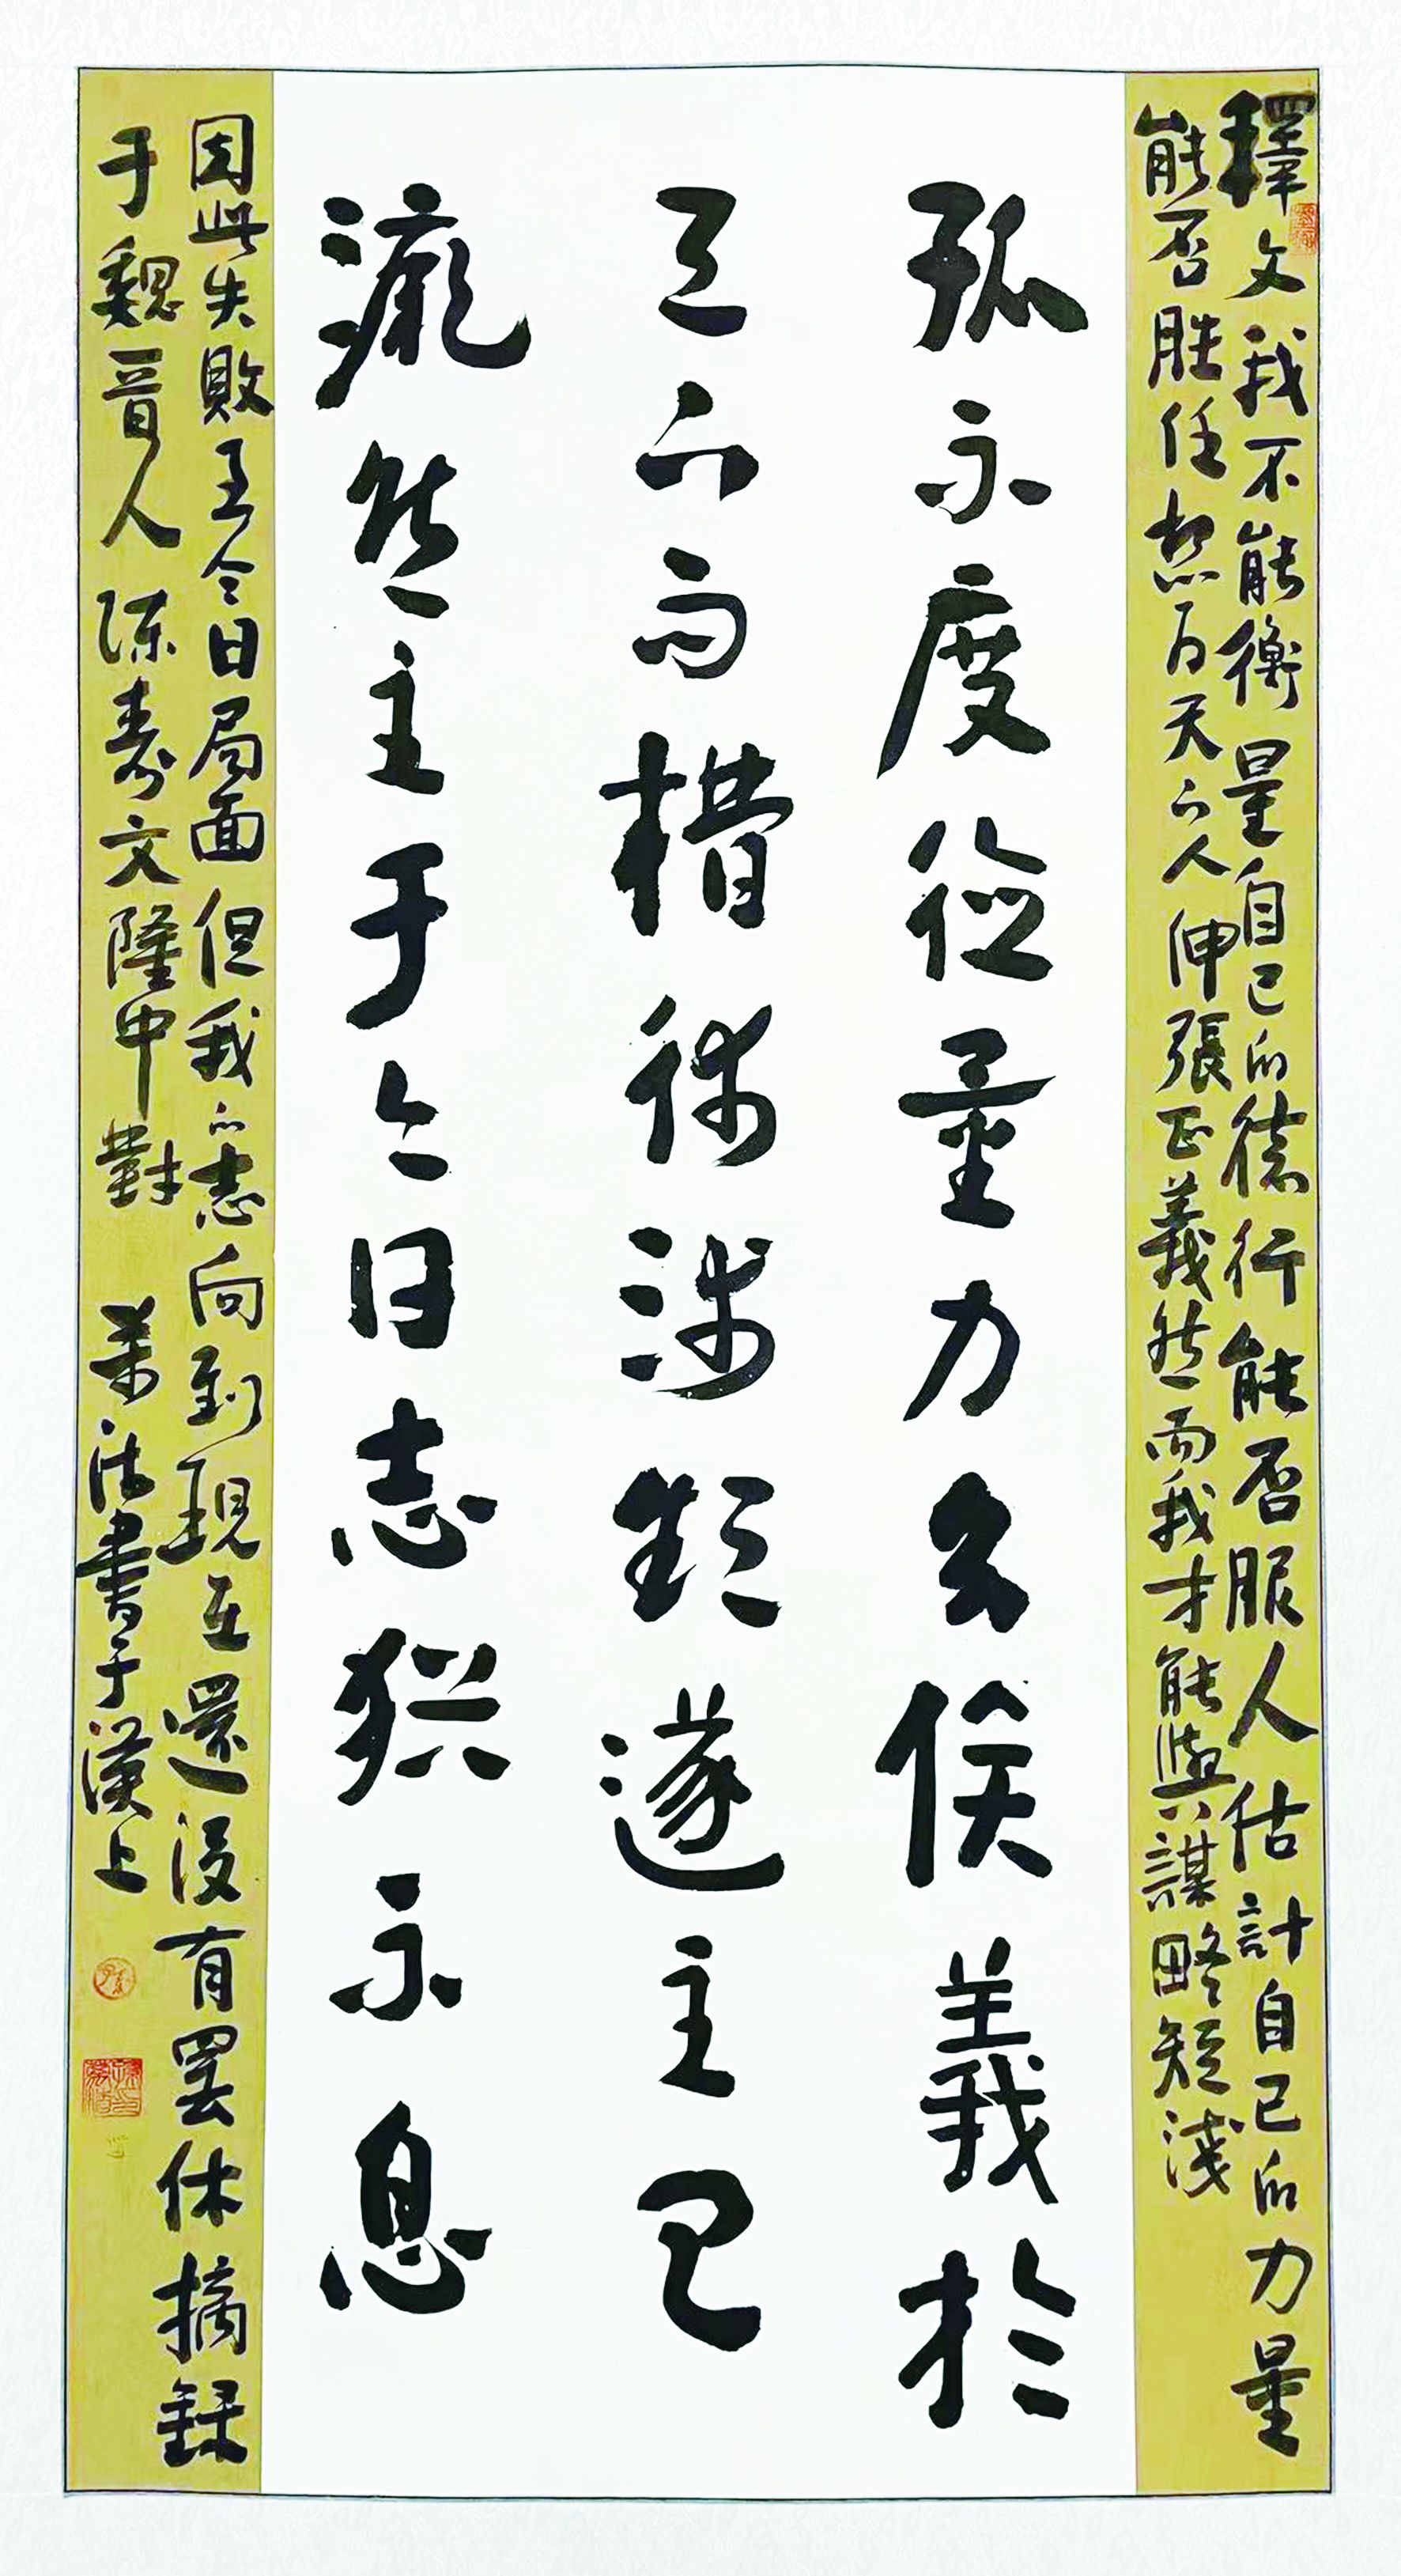 釋文我不能衡量自己的德行能否服人估計自己的力量
能否胜任想为天下人伸張正義然而我才能與謀略短淺
孤不度德量力義於
天下而術淺短遂
然于今日志猶不息
因此失敗至今日局面但我的志向到現在還没有罢休摘録
于魏晋人陳壽文隆中對 萬法書于漢上